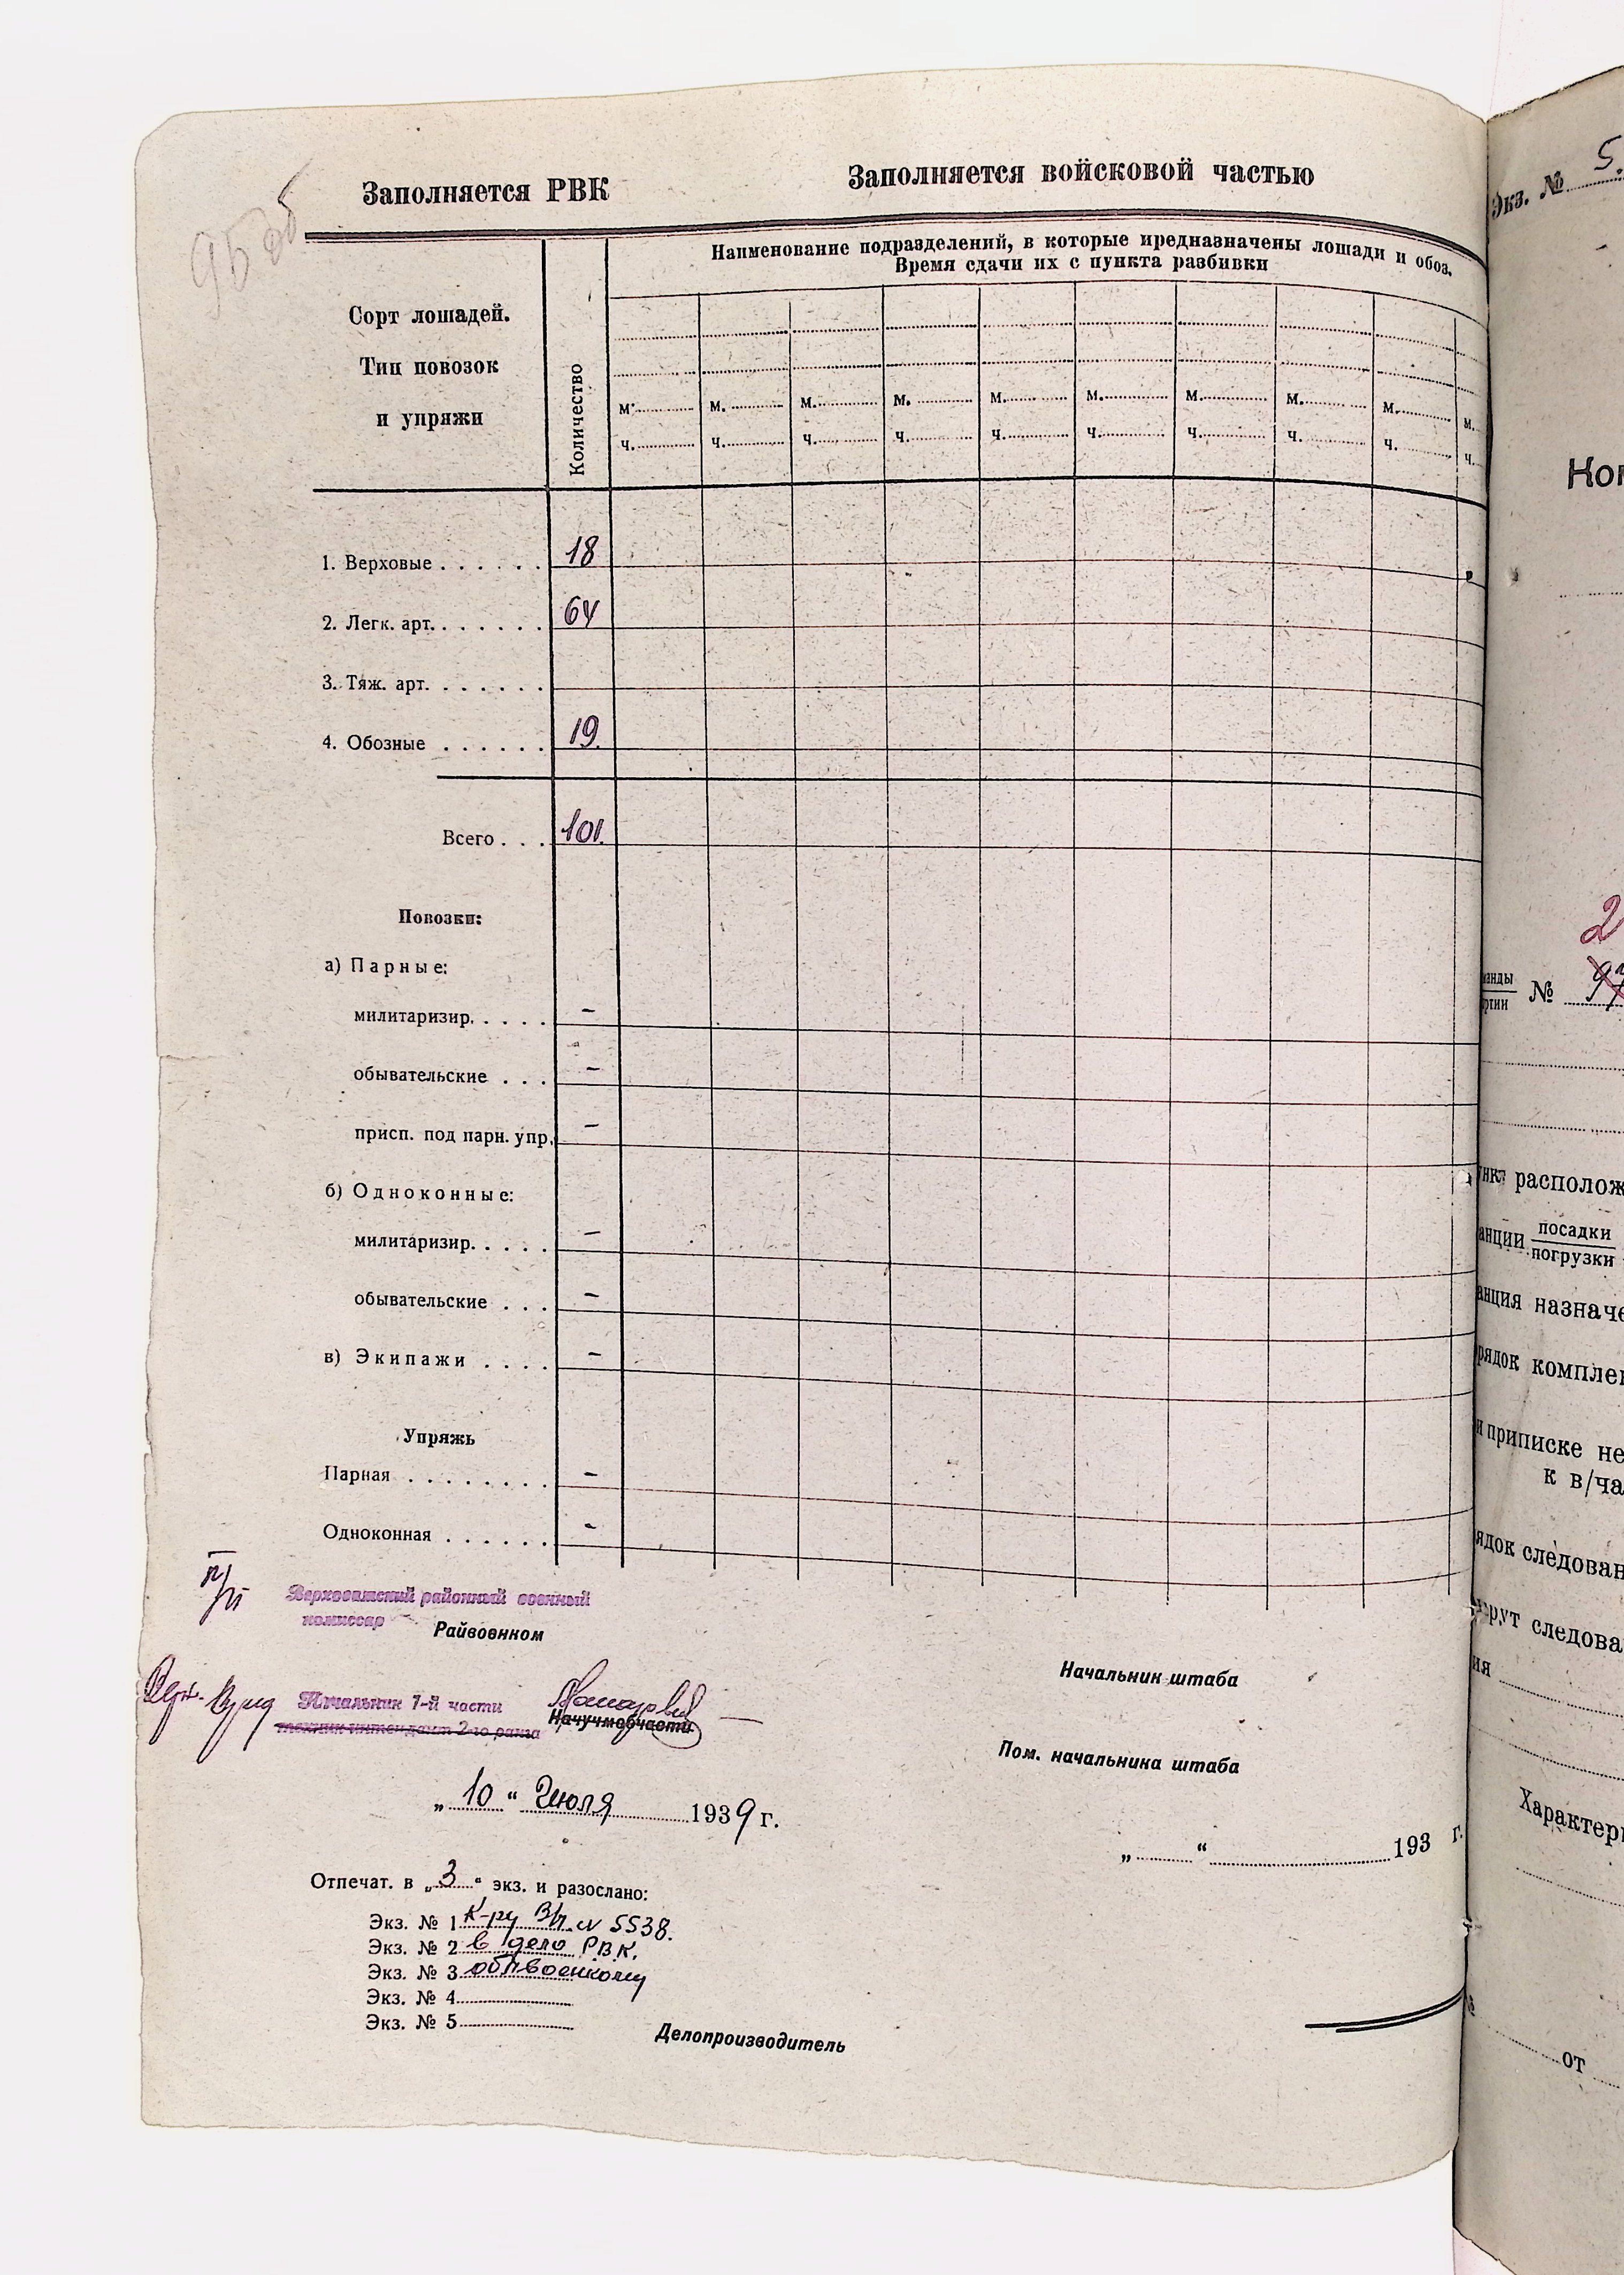 Заполняется РВК
Заполняется войсковой частью
Сорт лошадей.
Тип повозок
и упряжи
Количество
Наименование подразделений, в которые предназначены лошади и обоз.
Время сдачи их с пункта разбивки
м. м. м. м. м. м. м. м. м. м.
ч. ч. ч. ч. ч. ч. ч. ч. ч. ч.
1. Верховые . . . . . . 18
2. Легк. арт. . . . . . . 64
3. Тяж. арт. . . . . . .
4. Обозные . . . . . . 19.
Всего . . . 101.
Повозки:
а) Парные:
милитаризир. . . . . –
обывательские . . . –
присп. под парн. упр. –
б) Одноконные:
милитаризир. . . . . –
обывательские . . . –
в) Экипажи . . . . –
Упряжь
Парная . . . . . . . –
Одноконная . . . . . . -
районный военный
комиссар
Райвоенком
Начальник 1-й части
техник интендант 2-го ранга
Начучмобчасти
„ 10 “ Июля 1939 г.
Начальник штаба
Пом. начальника штаба
„ “ 193 г.
Отпечат. в „ 3 “ экз. и разослано:
Экз. № 1 К-ру В/ч. № 5538.
Экз. № 2 в дело РВК.
Экз. № 3 облвоенкому
Экз. № 4
Экз. № 5
Делопроизводитель
Экз. № 5.
Ком
2
№
расположе
посадки
погрузки
назначе
комплек
приписке не
к в/ча
следован
следова
Характери
от